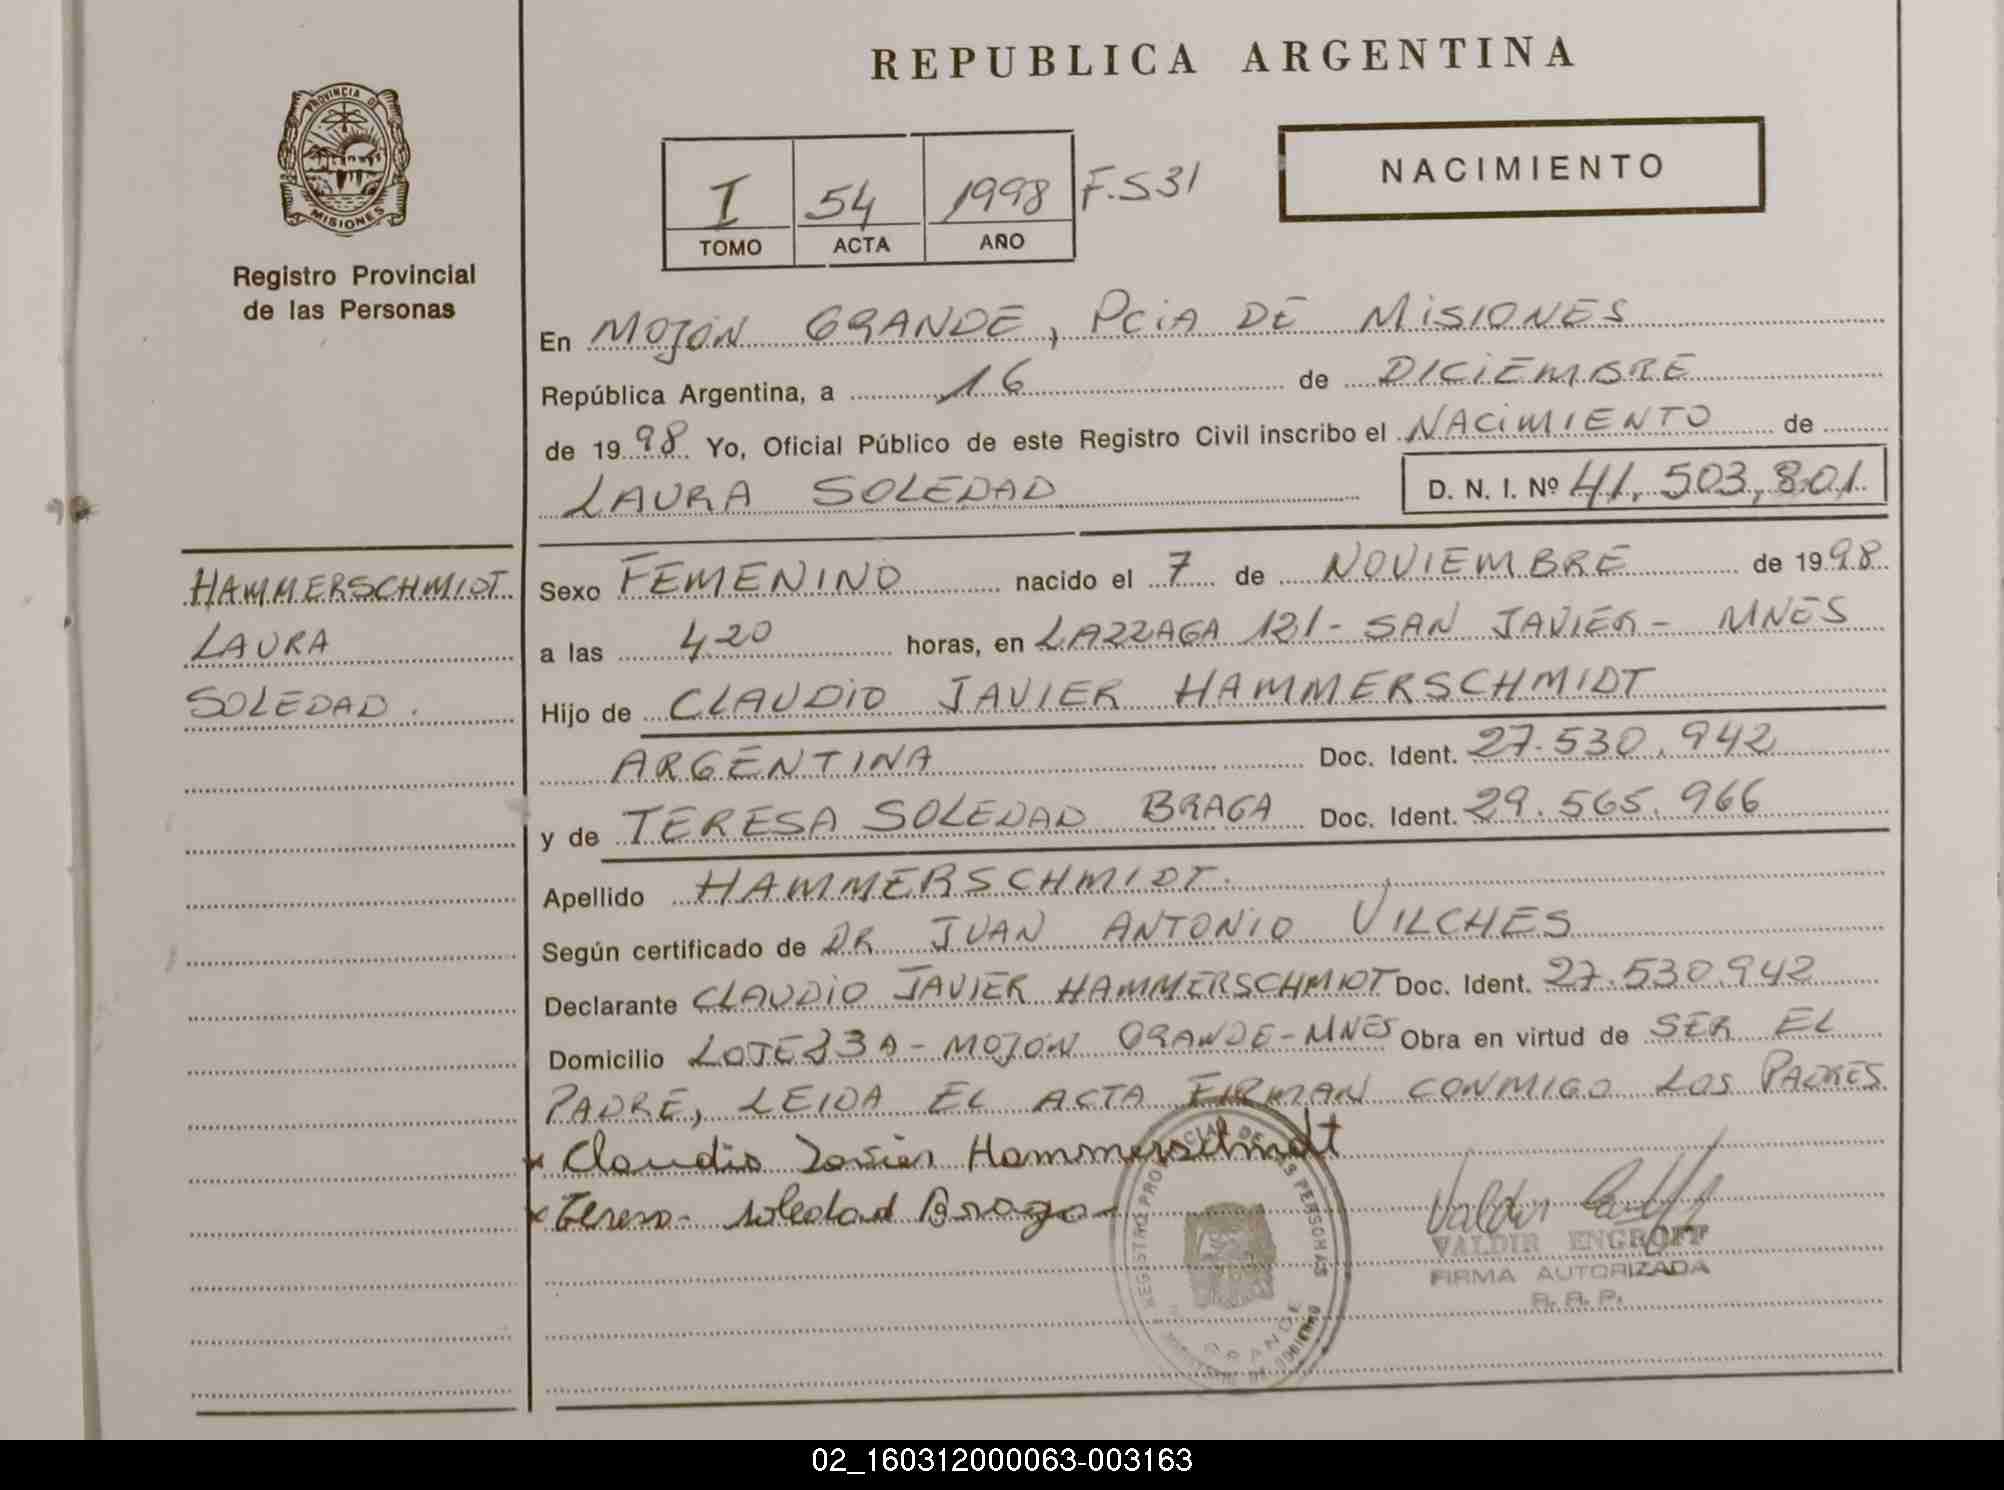 REPUBLICA ARGENTINA
PROVINCIA DE
MISIONES
Registro Provincial
de las Personas
NACIMIENTO
I 54 1998 F.S31
TOMO ACTA AÑO
En MOJÓN GRANDE, PCIA DE MISIONES
República Argentina, a 16 de DICIEMBRE
de 1998 Yo, Oficial Público de este Registro Civil inscribo el NACIMIENTO de
LAURA SOLEDAD D. N. I. Nº 41.503.801
HAMMERSCHMIDT
LAURA
SOLEDAD.
Sexo FEMENINO nacido el 7 de NOVIEMBRE de 1998
a las 4 20 horas, en LAZZAGA 121- SAN JAVIER- MNES
Hijo de CLAUDIO JAVIER HAMMERSCHMIDT
ARGENTINA Doc. Ident. 27.530.942
y de TERESA SOLEDAD BRAGA Doc. Ident. 29.565.966
Apellido HAMMERSCHMIDT.
Según certificado de DR JUAN ANTONIO VILCHES
Declarante CLAUDIO JAVIER HAMMERSCHMIDT Doc. Ident. 27.530.942
Domicilio LOTE 33A - MOJON GRANDE-MNES Obra en virtud de SER EL
PADRE, LEIDA EL ACTA FIRMAN CONMIGO LOS PADRES
x Claudio Javier Hammerschmidt
x Teresa Soledad Braga
REGISTRO PROVINCIAL DE LAS PERSONAS
GRANDE
VALDIR ENGROFF
FIRMA AUTORIZADA
02_160312000063-003163